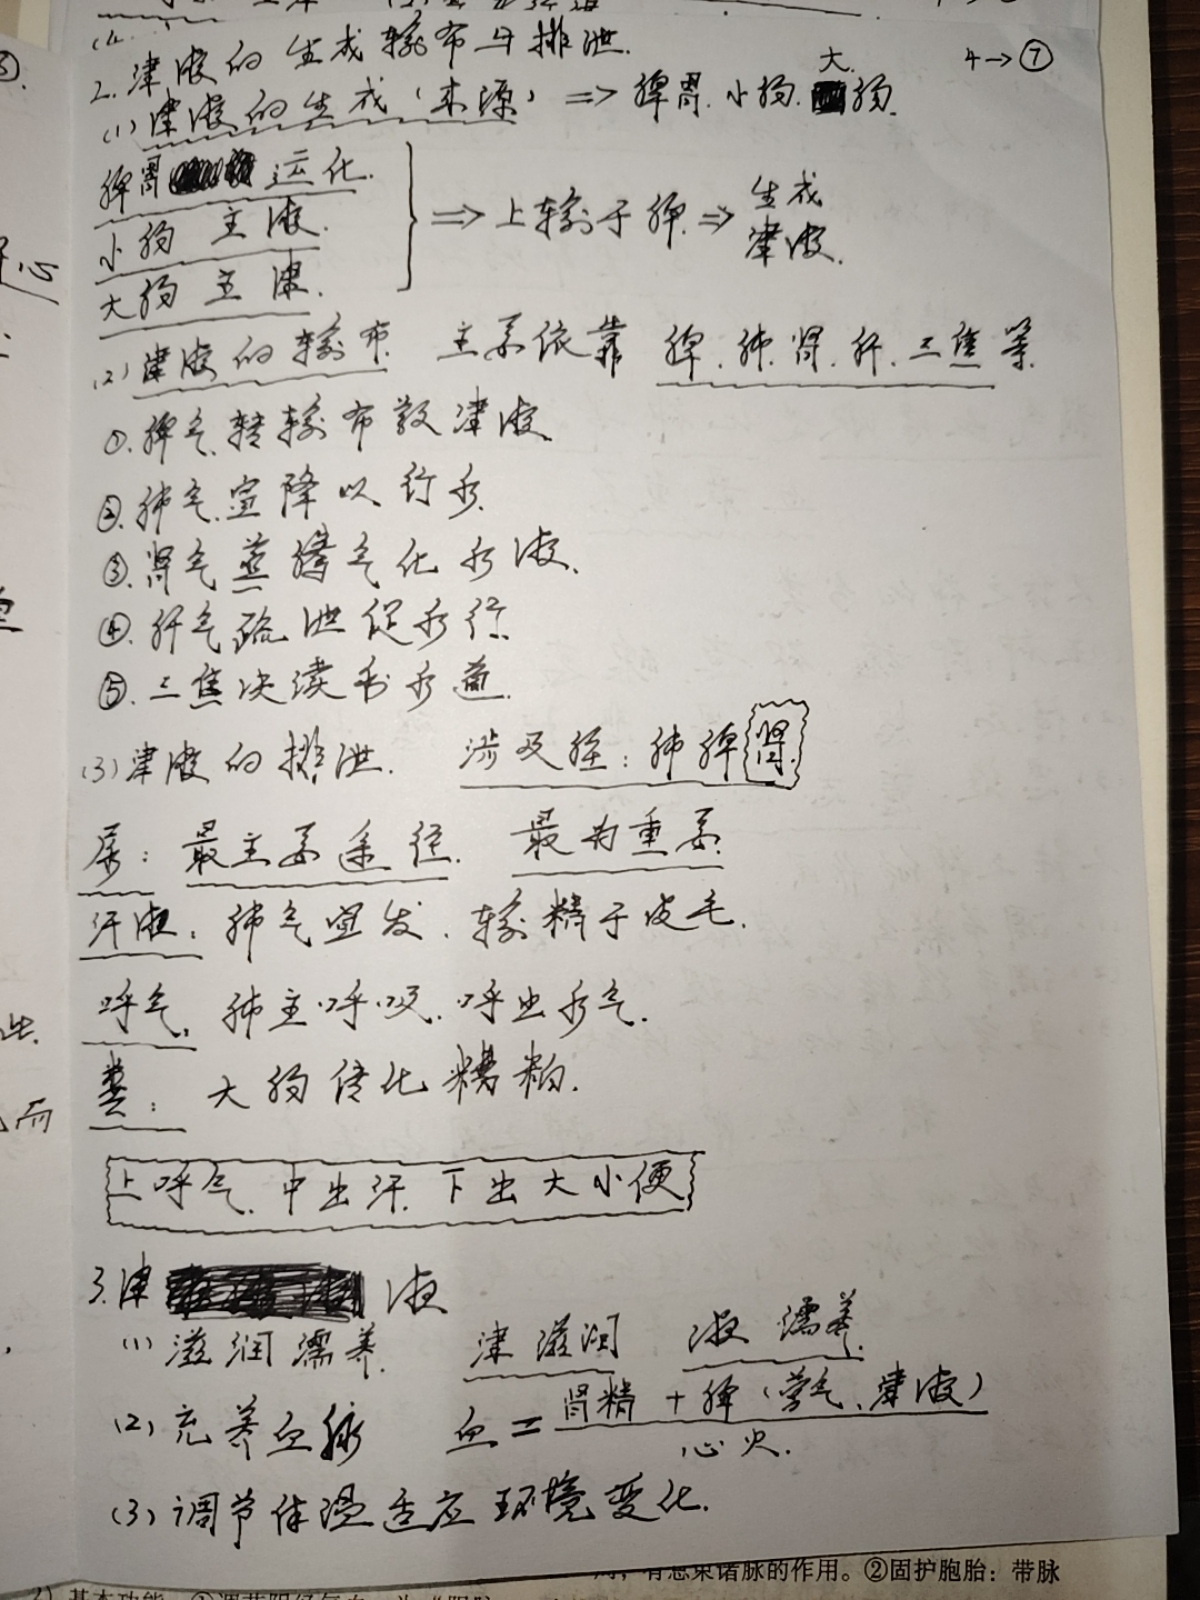 4→⑦
2.津液的生成输布与排泄.
(1)津液的生成(来源)⇒脾胃.小肠.大肠.
脾胃 运化.
小肠 主液.
大肠 主津.
⇒上输于脾⇒生成津液.
(2)津液的输布 主要依靠 脾.肺.肾.肝.三焦等.
①.脾气转输布散津液.
②.肺气宣降以行水.
③.肾气蒸腾气化水液.
④.肝气疏泄促水行.
⑤.三焦决渎利水道.
(3)津液的排泄. 涉及脏:肺脾肾.
尿:最主要途径. 最为重要.
汗液:肺气宣发.输精于皮毛.
呼气.肺主呼吸.呼出水气.
粪:大肠传化糟粕.
上呼气.中出汗.下出大小便
3.津液
(1)滋润濡养. 津滋润 液濡养.
(2)充养血脉 血=肾精+脾(营气、津液)
心火.
(3)调节体温适应环境变化.
有总束诸脉的作用。②固护胞胎：带脉